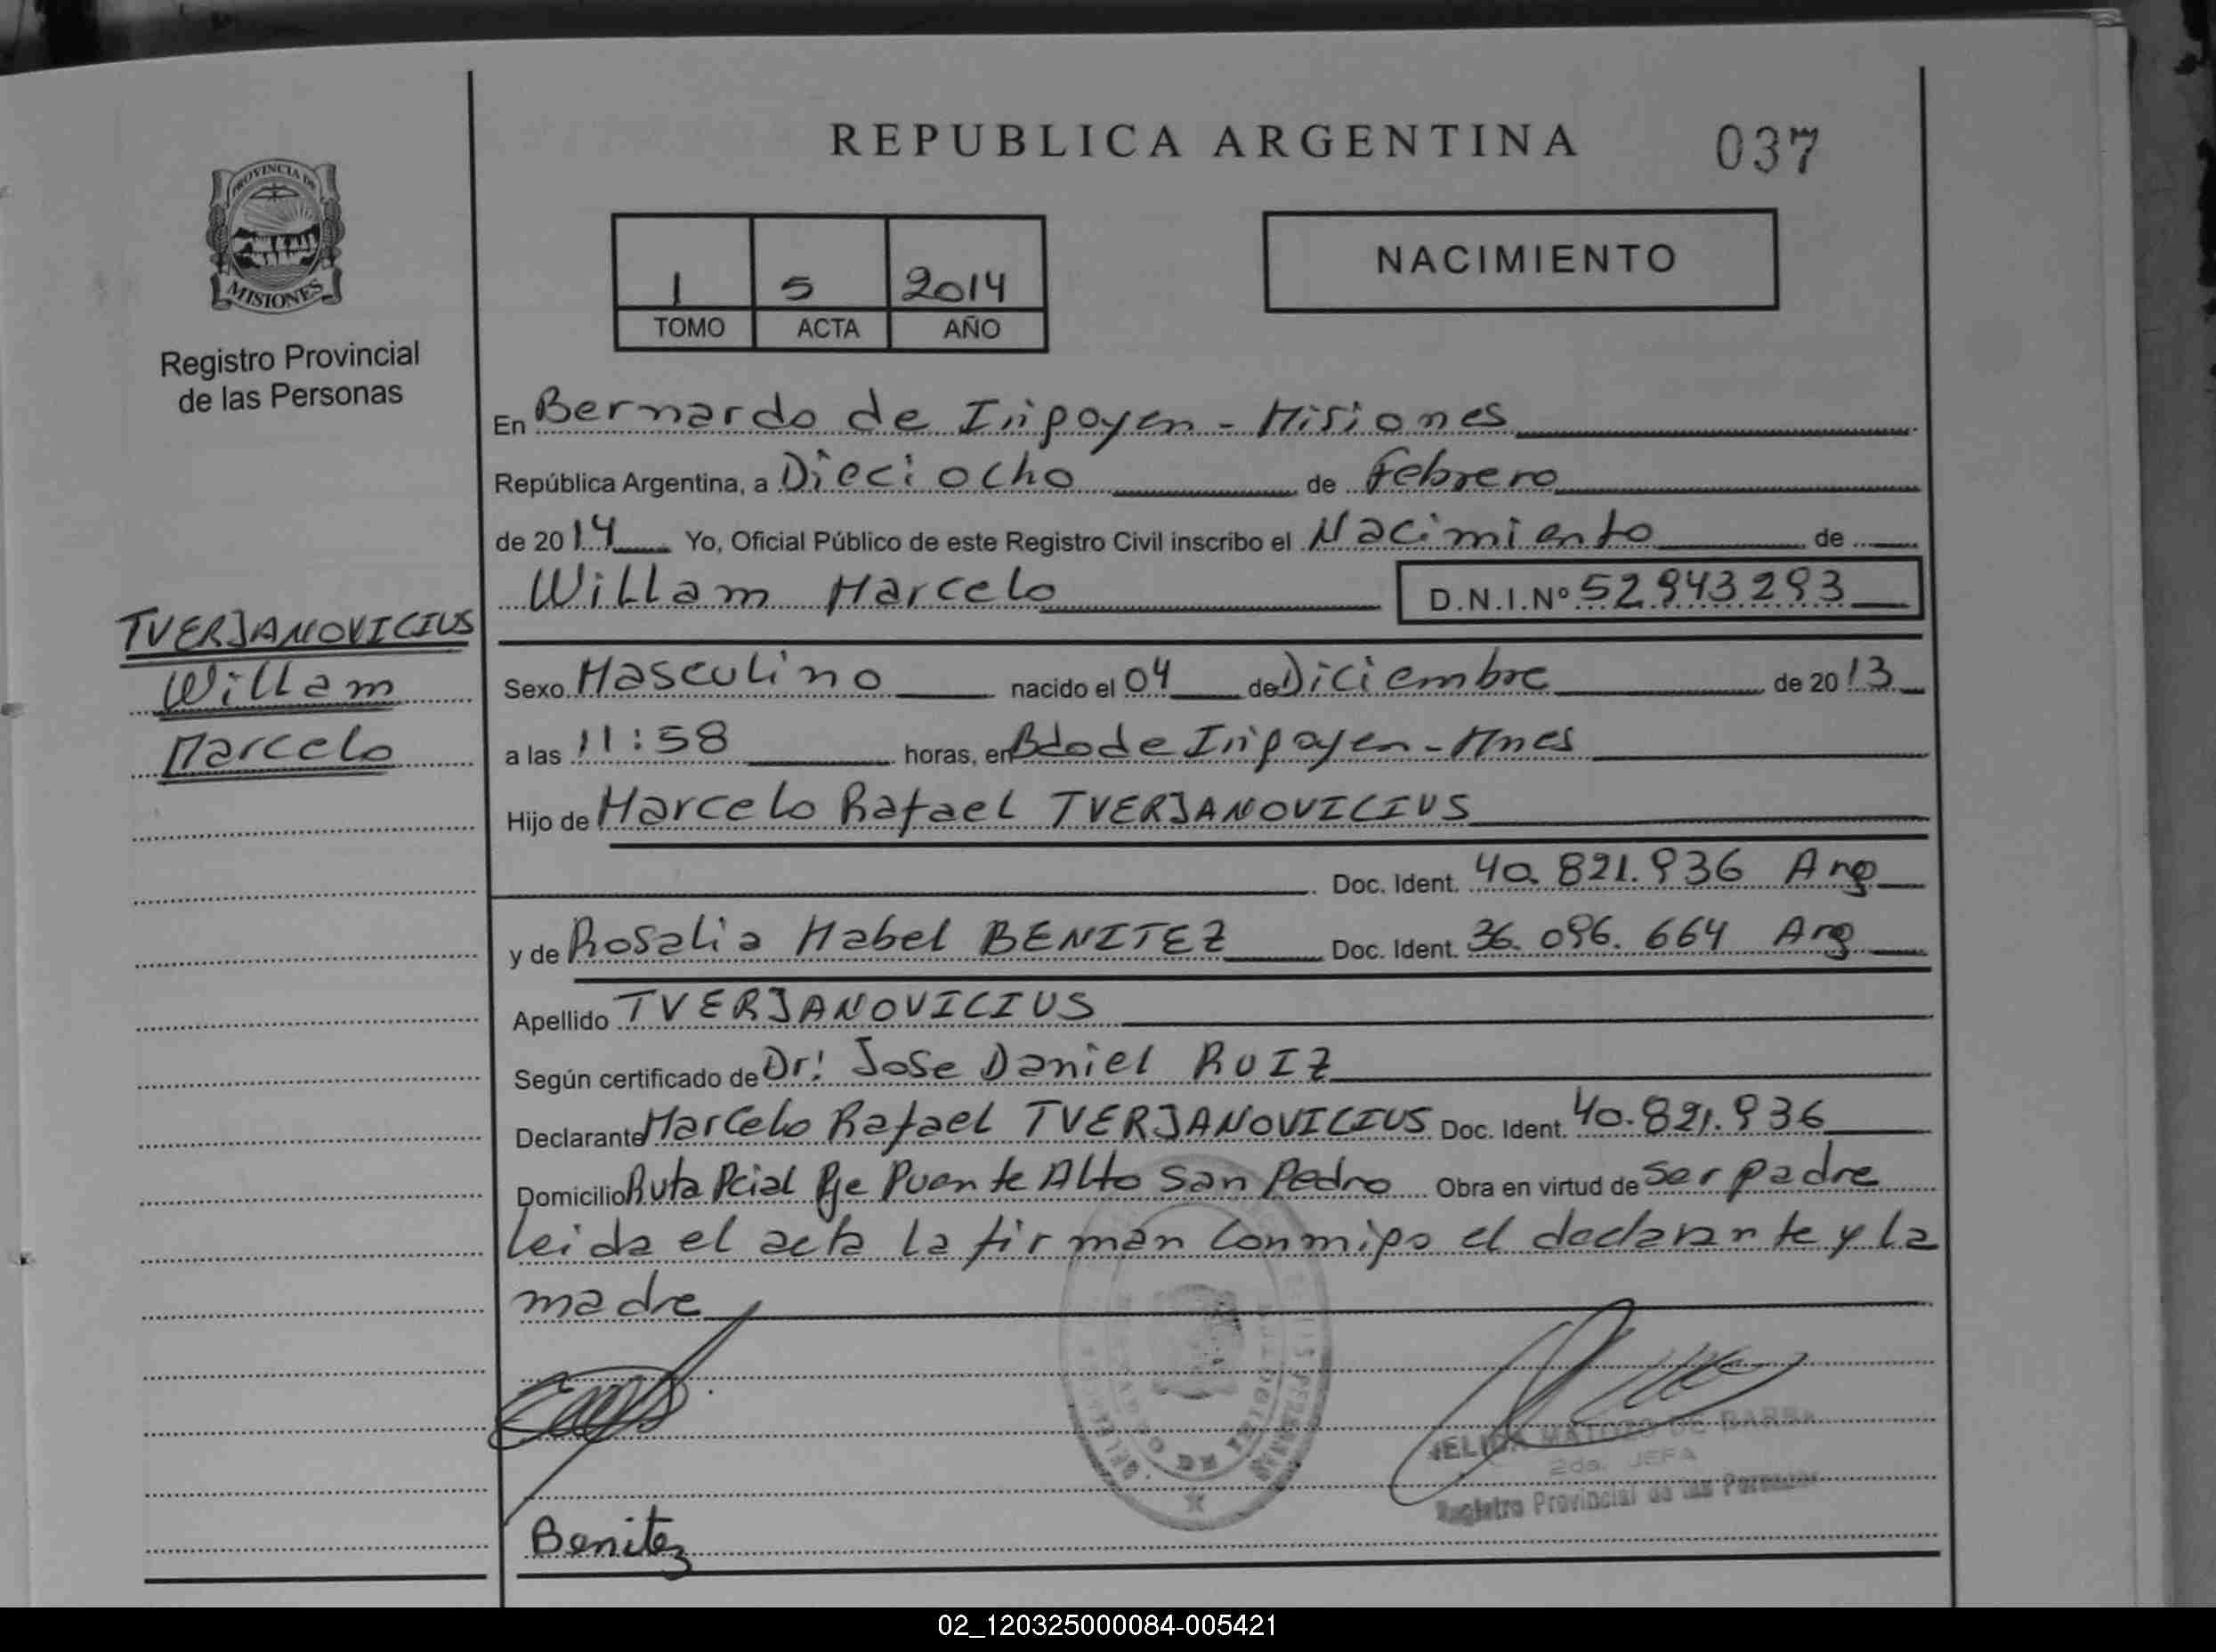 REPUBLICA ARGENTINA
037
PROVINCIA DE
MISIONES
Registro Provincial
de las Personas
1 5 2014
TOMO ACTA AÑO
NACIMIENTO
En Bernardo de Irigoyen - Misiones
República Argentina, a Dieciocho de Febrero
de 2014 Yo, Oficial Público de este Registro Civil inscribo el Nacimiento de
Willam Marcelo D.N.I.Nº 52.943.293
TVERJANOVICIUS
Willam
Marcelo
Sexo Masculino nacido el 04 de Diciembre de 2013
a las 11:58 horas, en Bdo de Irigoyen - Mnes
Hijo de Marcelo Rafael TVERJANOVICIUS
Doc. Ident. 40.821.936 Arg
y de Rosalia Mabel BENITEZ Doc. Ident. 36.096.664 Arg
Apellido TVERJANOVICIUS
Según certificado de Dr: Jose Daniel RUIZ
Declarante Marcelo Rafael TVERJANOVICIUS Doc. Ident. 40.821.936
Domicilio Ruta Pcial Pje Puente Alto San Pedro Obra en virtud de ser padre
Leida el acta la firman conmigo el declarante y la
madre
MATOZO DE
2da. JEFA
Registro Provincial de las Personas
Benitez
02_120325000084-005421